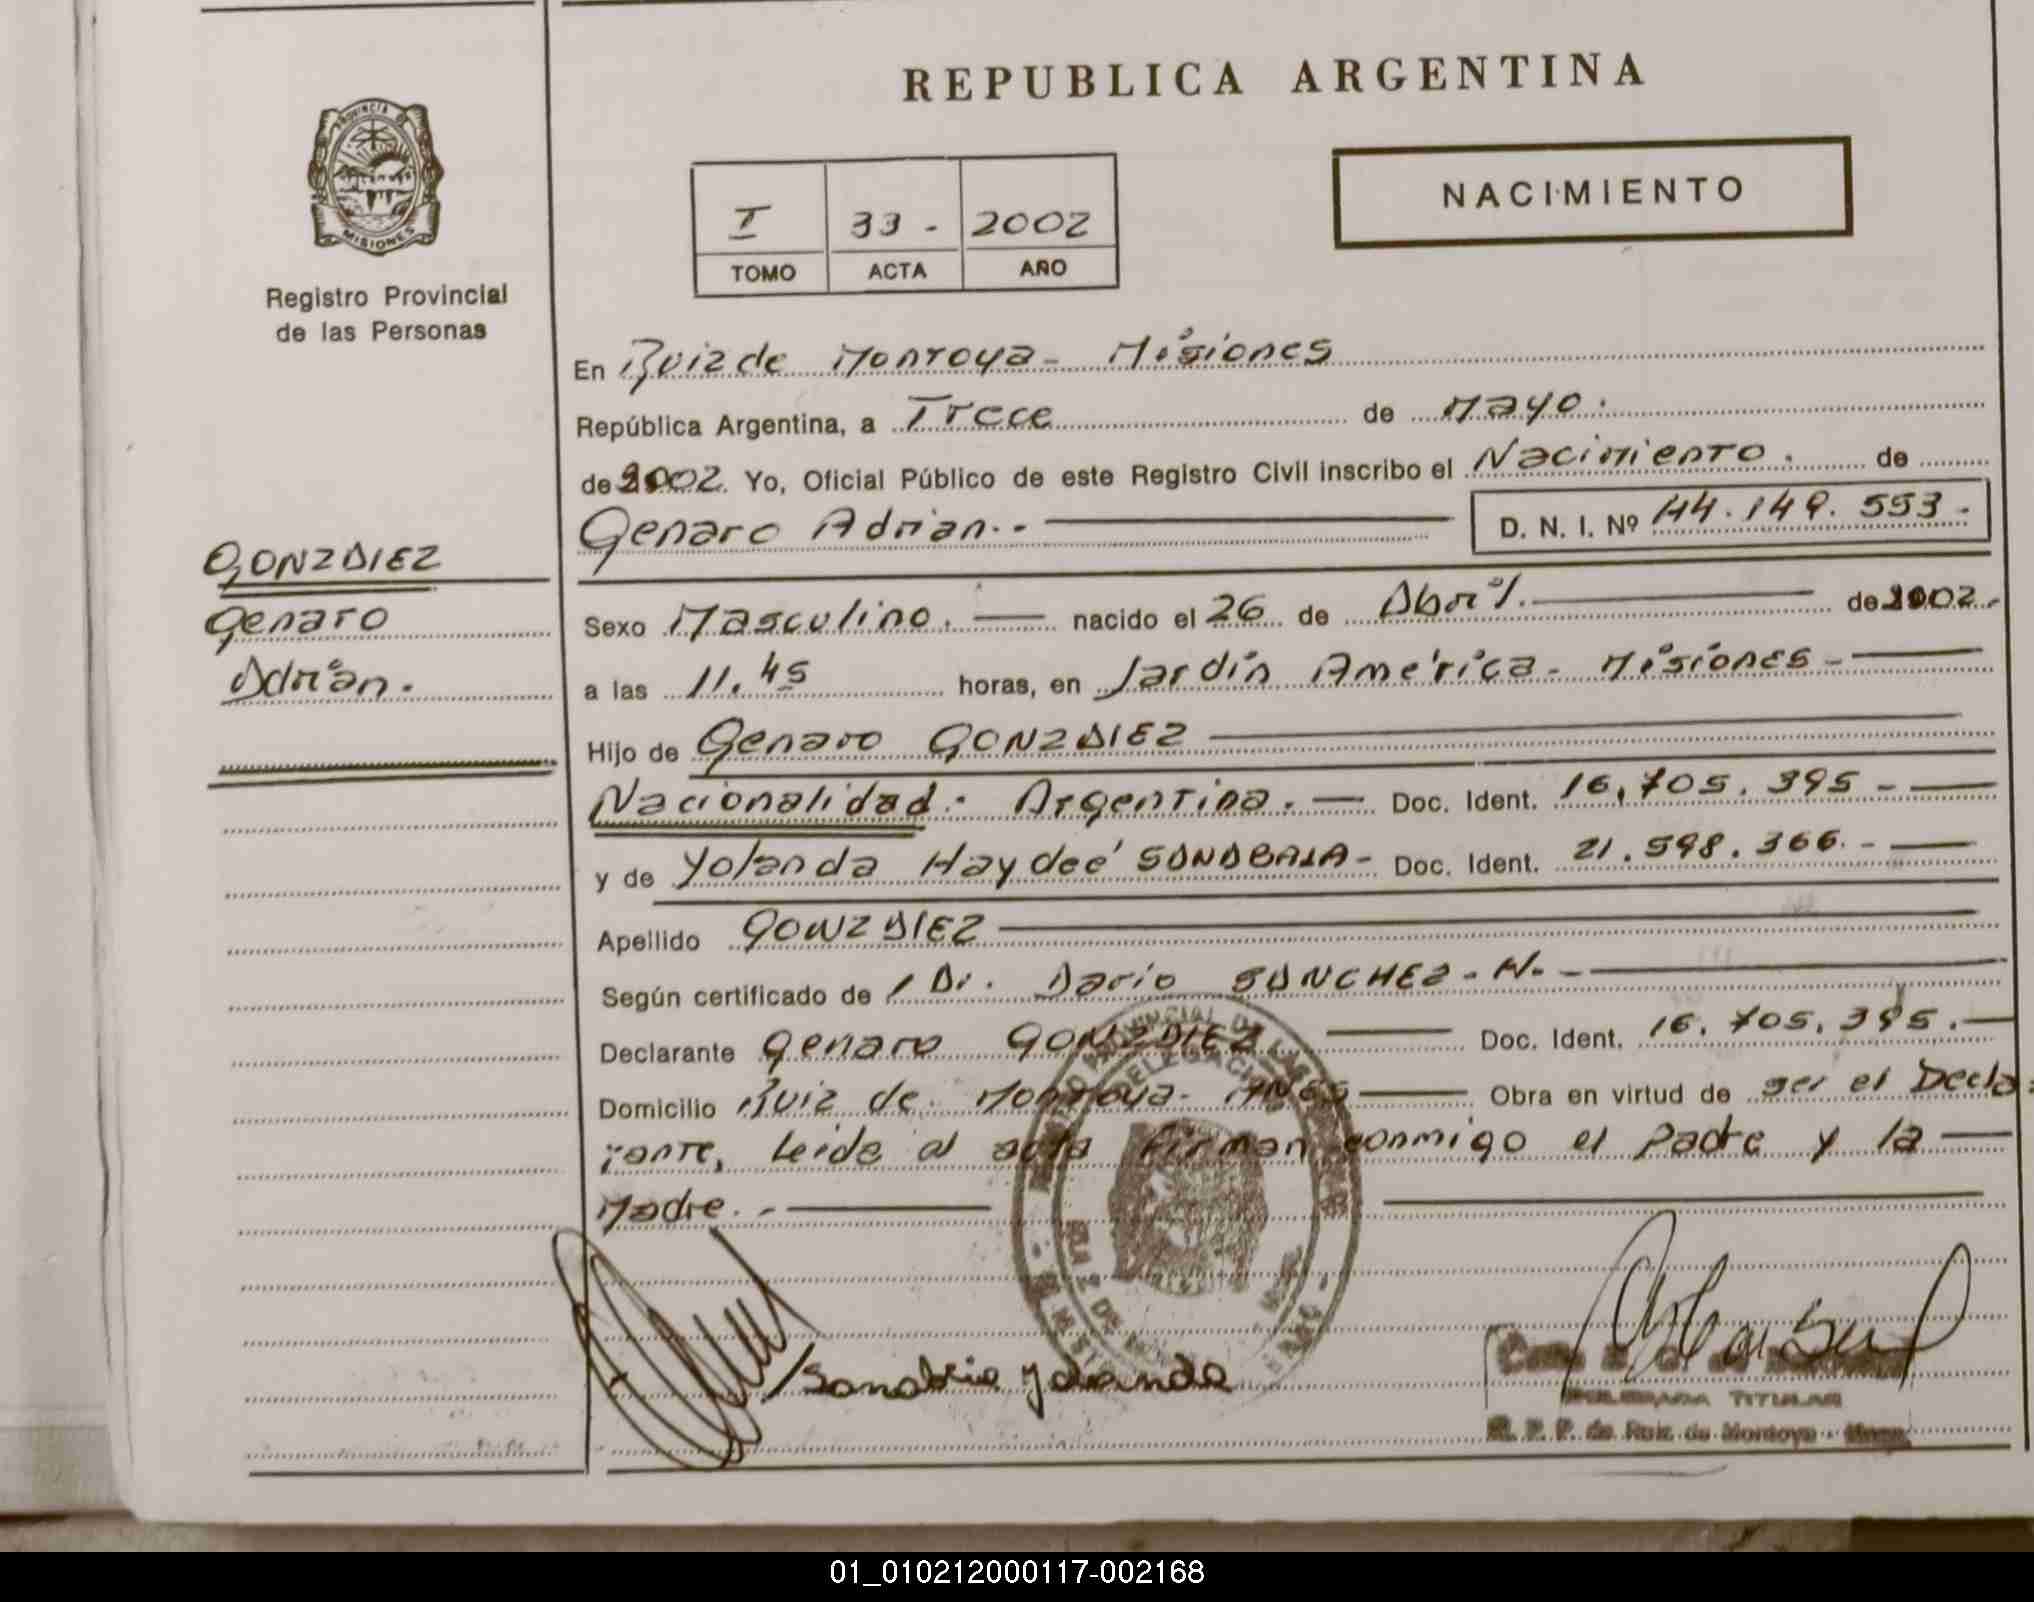 REPUBLICA ARGENTINA
PROVINCIA DE
MISIONES
Registro Provincial
de las Personas
I 33 - 2002
TOMO ACTA AÑO
NACIMIENTO
En Ruiz de Montoya - Misiones
República Argentina, a Trece de Mayo.
de 2002. Yo, Oficial Público de este Registro Civil inscribo el Nacimiento. de
Genaro Adrian.- D. N. I. Nº 44.149.553.-
GONZALEZ
Genaro
Adrián.
Sexo Masculino. nacido el 26 de Abril. de 2002.-
a las 11.45 horas, en Jardín América - Misiones -
Hijo de Genaro GONZALEZ
Nacionalidad.- Argentina. Doc. Ident. 16.705.395 -
y de Yolanda Haydeé Doc. Ident. 21.598.366.-
Apellido GONZALEZ
Según certificado de / Dr. Darío SANCHEZ - N.-
Declarante Genaro GONZALEZ Doc. Ident. 16.705.395.-
Domicilio Ruiz de Montoya - MNES Obra en virtud de ser el Decla-
rante, Leida el acta firman conmigo el Padre y la
Madre.-
Yolanda
TITULAR
R. P. P. de Ruiz de Montoya - Mnes.
01_010212000117-002168